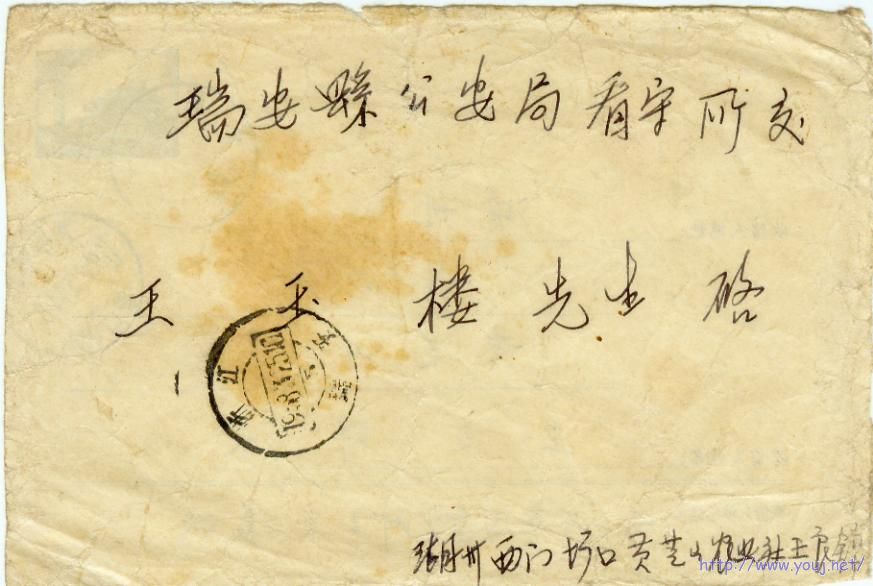 瑞安縣公安局看守所交
王玉楼先生啓
浙江
瑞安
湖州西门坝口黄芝山农业社王
http://www.youj.net/